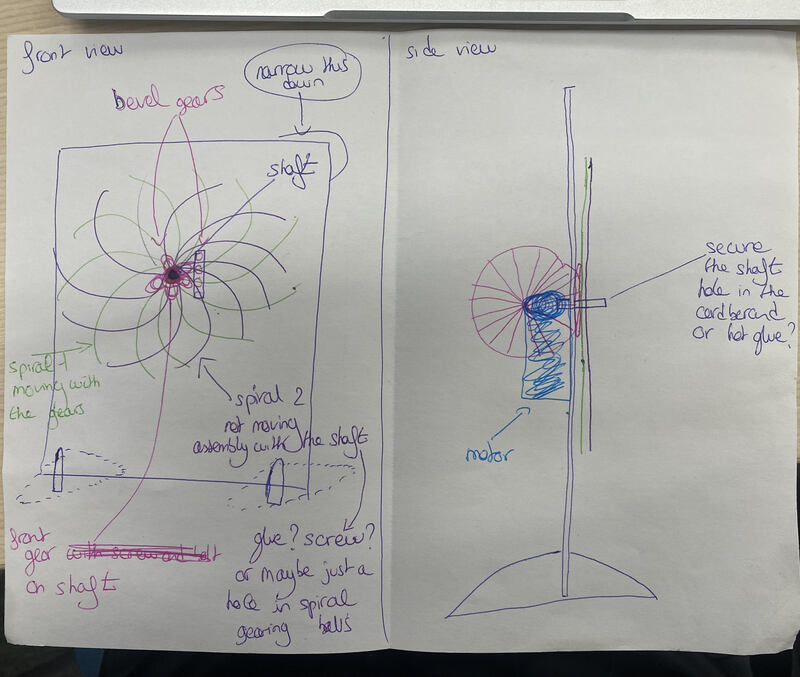 front view
narrow this
down
bevel gears
shaft
spiral 1
moving with
the gears
spiral 2
not moving
assembly with the shaft
front
gear with screw and
on shaft
glue? screw?
or maybe just a
hole in spiral
gearing
side view
secure
the shaft
hole in the
cardberand
or hot glue?
motor